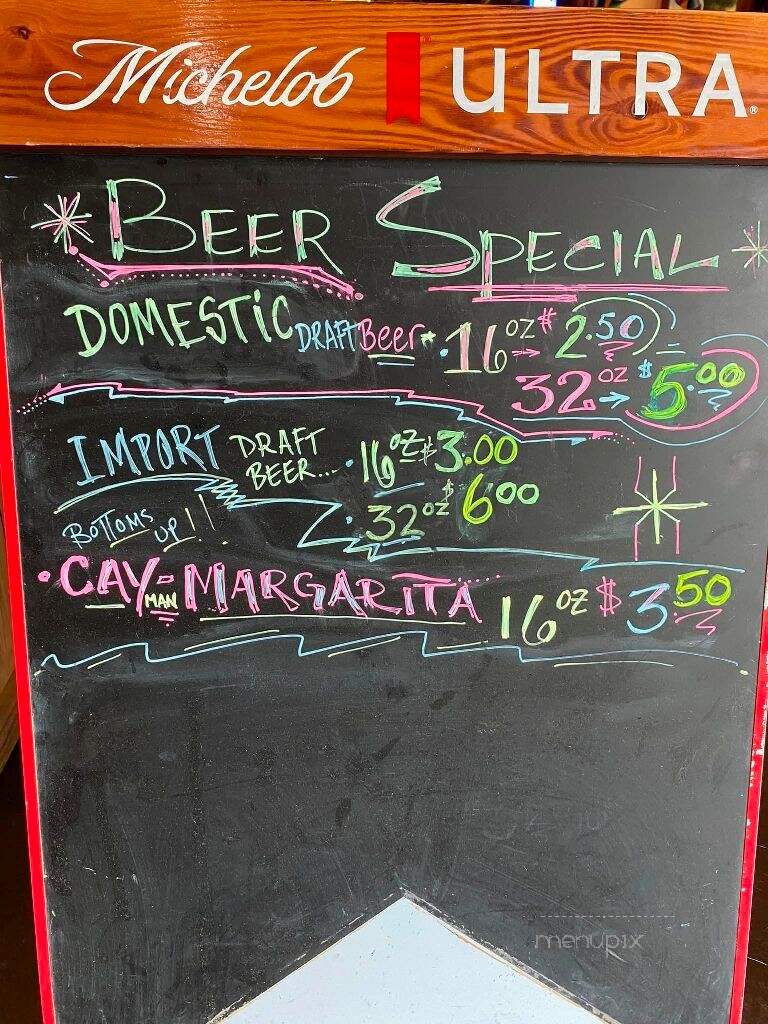 Michelob ULTRA®
* BEER SPECIAL *
DOMESTIC DRAFT Beer * • 16 OZ → $2.50
32 OZ → $5.00
IMPORT DRAFT BEER... • 16 OZ $3.00
• 32 OZ $6.00
BOTTOMS UP!!
• CAYMAN-MARGARITA 16 OZ $3.50
menupix